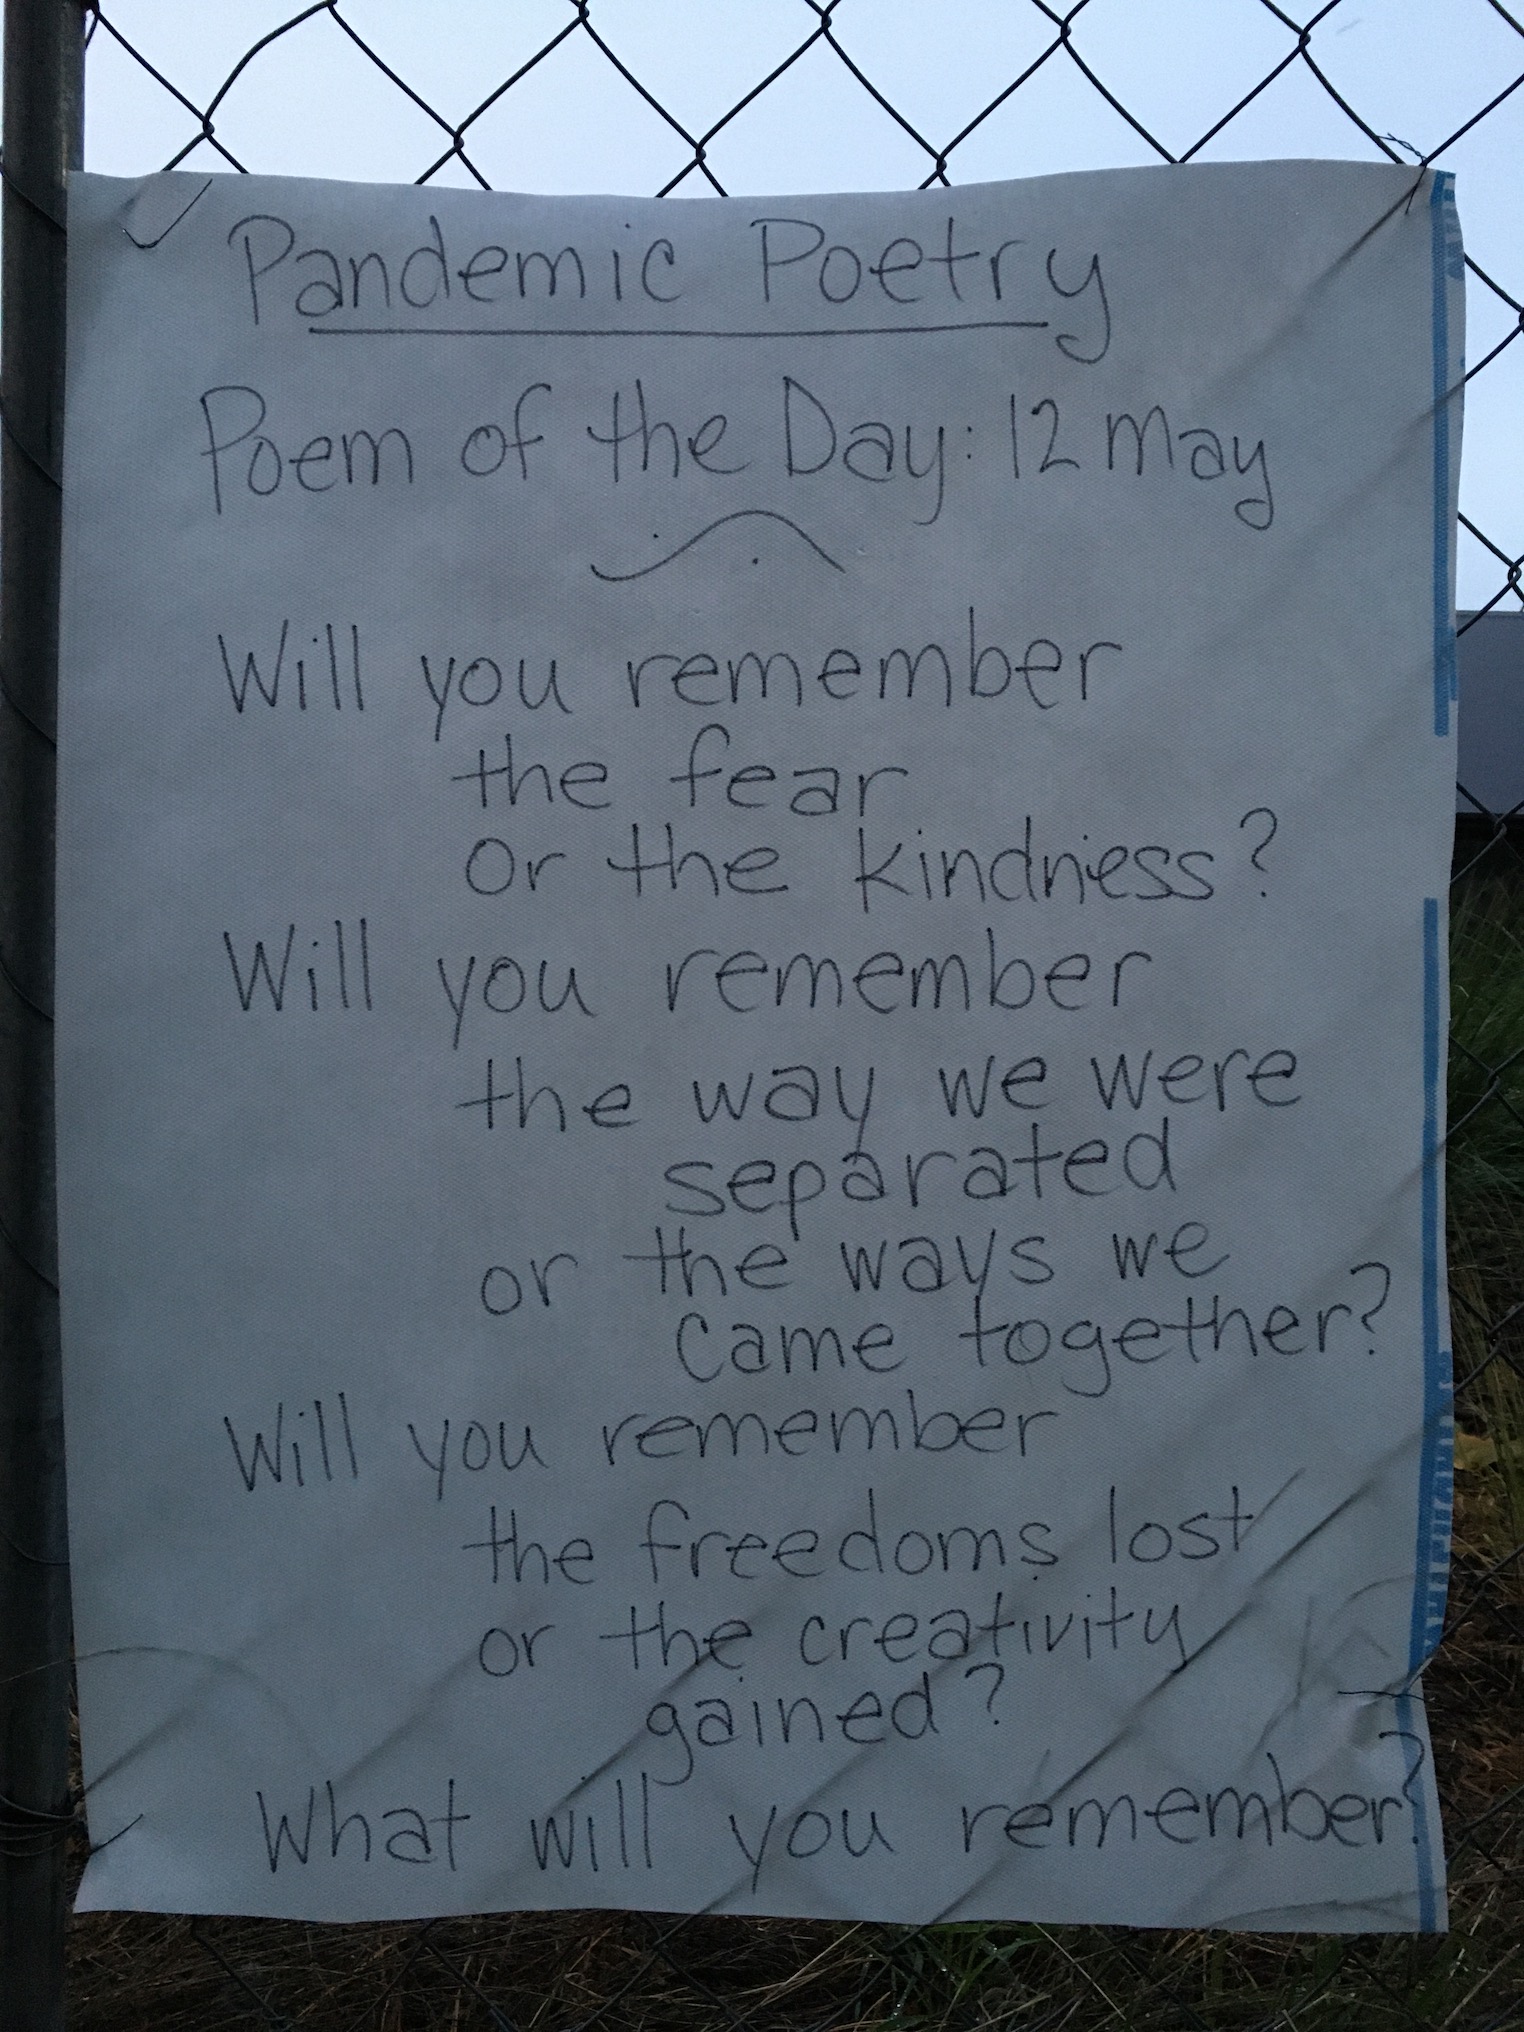 Pandemic Poetry
Poem of the Day: 12 May
Will you remember
the fear
or the kindness?
Will you remember
the way we were
separated
or the ways we
came together?
Will you remember
the freedoms lost
or the creativity
gained?
What will you remember?